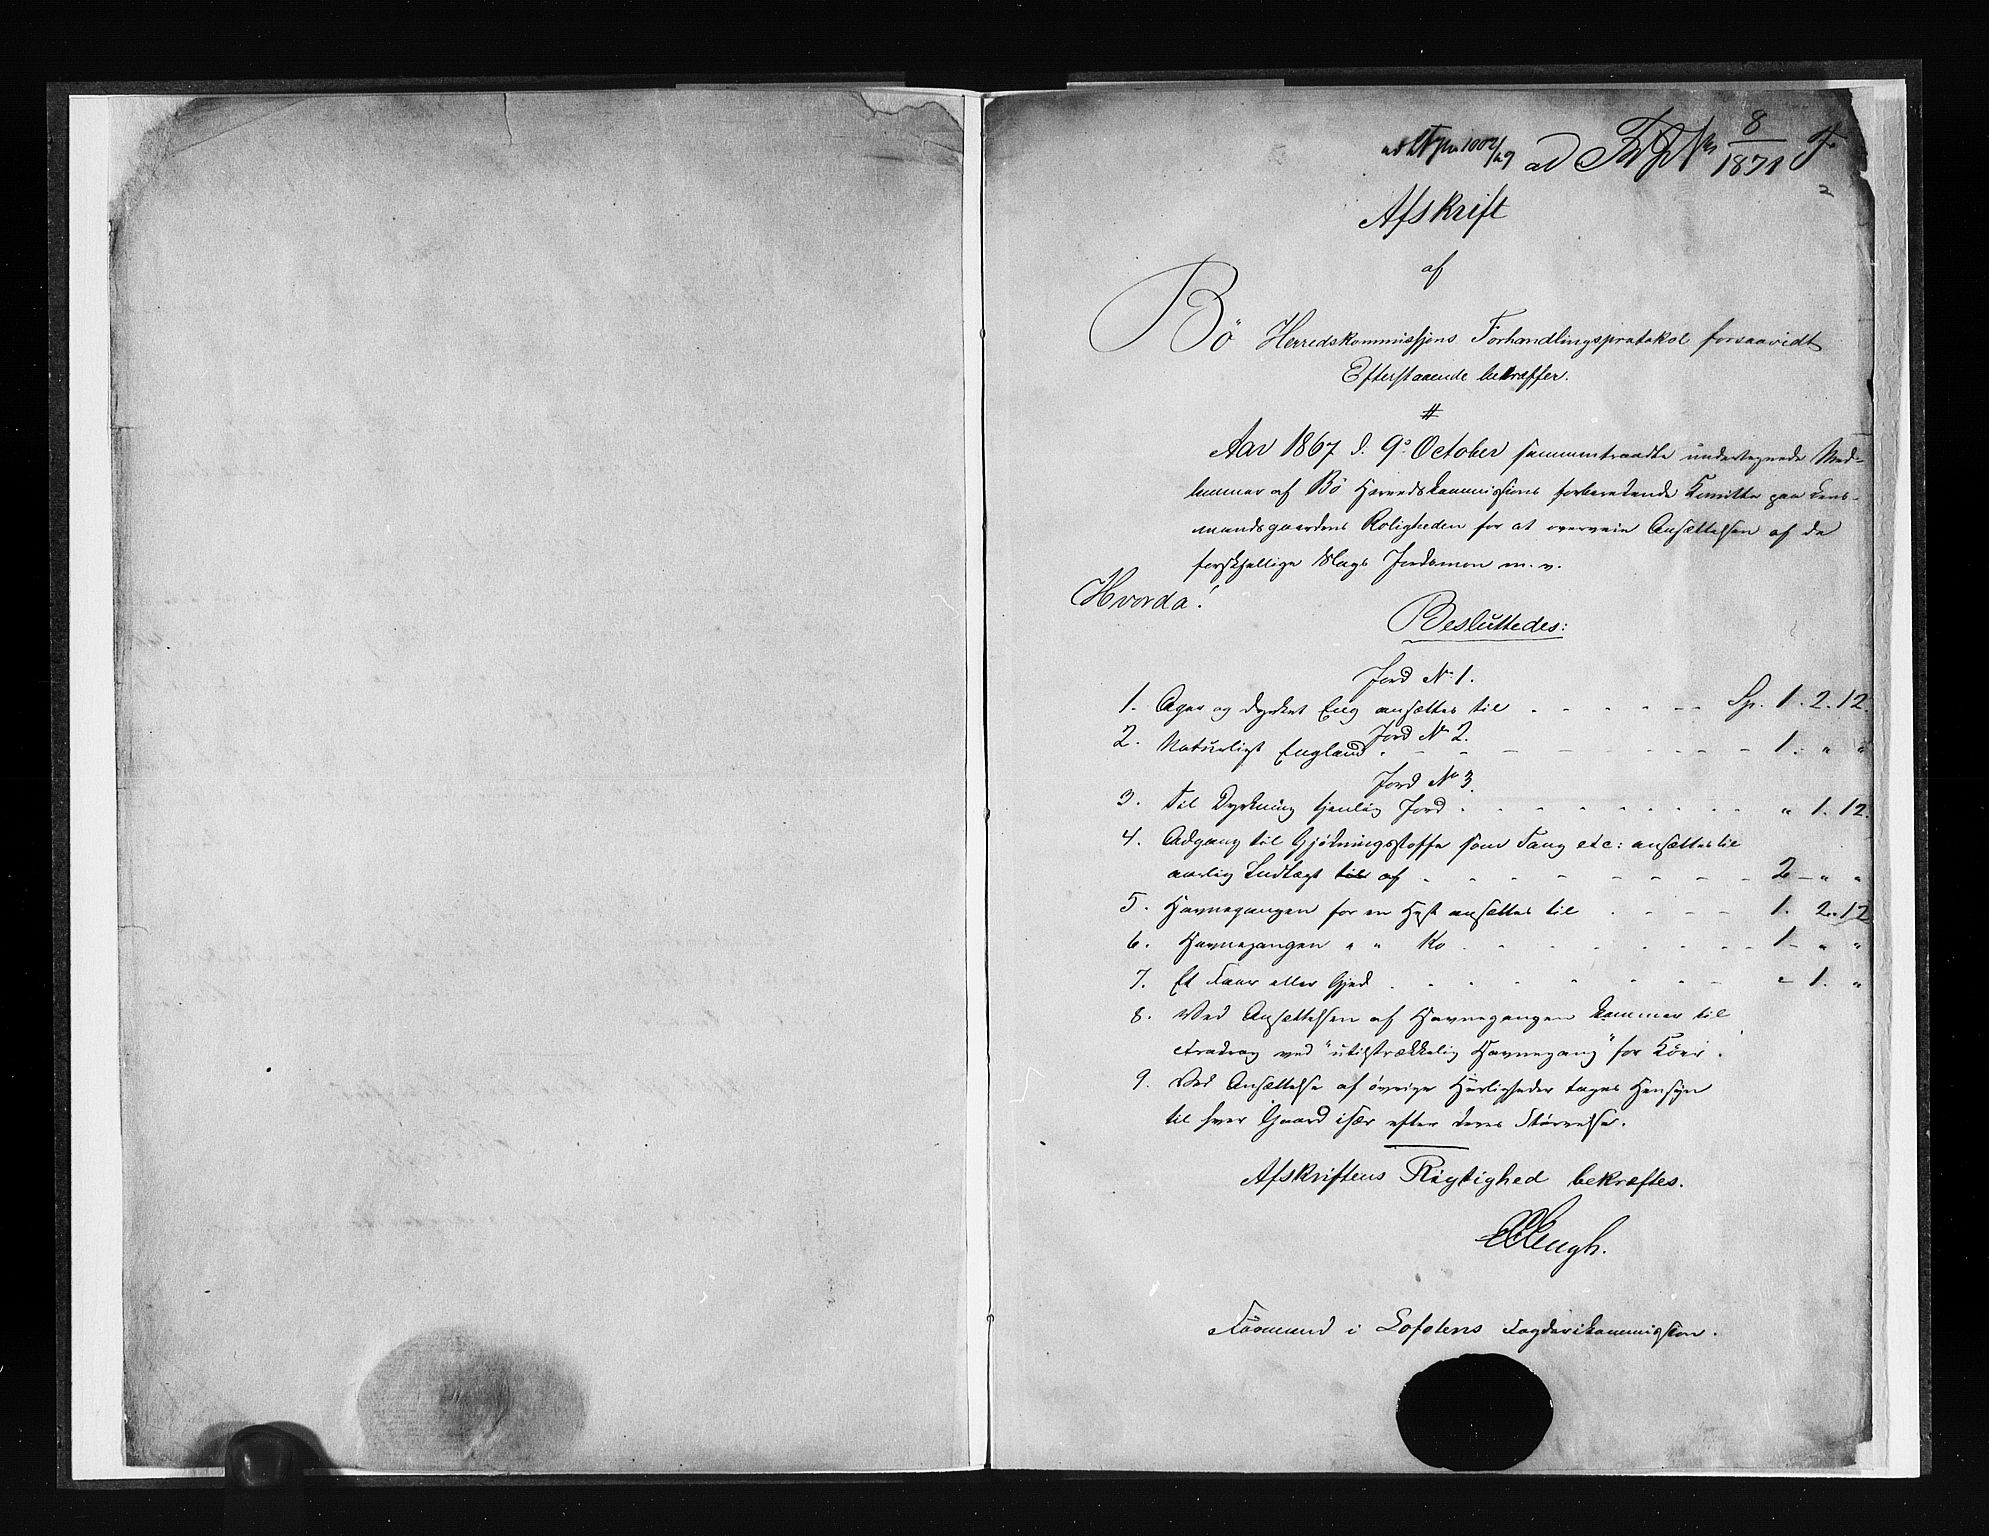 ad Jr No 8/1871 F.
2
Afskrift
af
Bö Herredskommissjons Forhandlingsprotokol forsaavidt
Efterstaaende betræffer.
#
Aar 1867 d. 9de October sammentraadte undertegnede Med-
lemmer af Bö Herredskommissions forberedende Komitte paa Lens-
mandsgaarden Roligheden for at overveie Ansættelsen af de
forskjellige Slags Jordsmon m. v.
Hvorda!
Besluttedes:
Jord No 1.
1. Ager og dyrket Eng ansættes til . . . . Sp. 1. 2. 12.
Jord No 2.
2. Naturligt England . . . . 1. " "
Jord No 3.
3. Til Dyrkning tjenlig Jord . . . . " 1. 12.
4. Adgang til Gjödningsstoffe som Tang etc: ansættes til
aarlig Indtægt til af . . . . 2 - " "
5. Havnegangen for en Hest ansættes til . . . . 1. 2. 12
6. Havnegangen " " Ko . . . . 1 - " "
7. Et Faar eller Gjed . . . . - 1. "
8. Ved Ansættelsen af Havnegangen kommer til
Fradrag ved "utilstrækkelig Havnegang" for Köer.
9. Ved Ansættelse af övrige Herligheder tages Hensyn
til hver Gaard især efter deres Störrelse.
Afskriftens Rigtighed bekræftes.
Wengh.
Formand i Lofotens Fogderikommission.